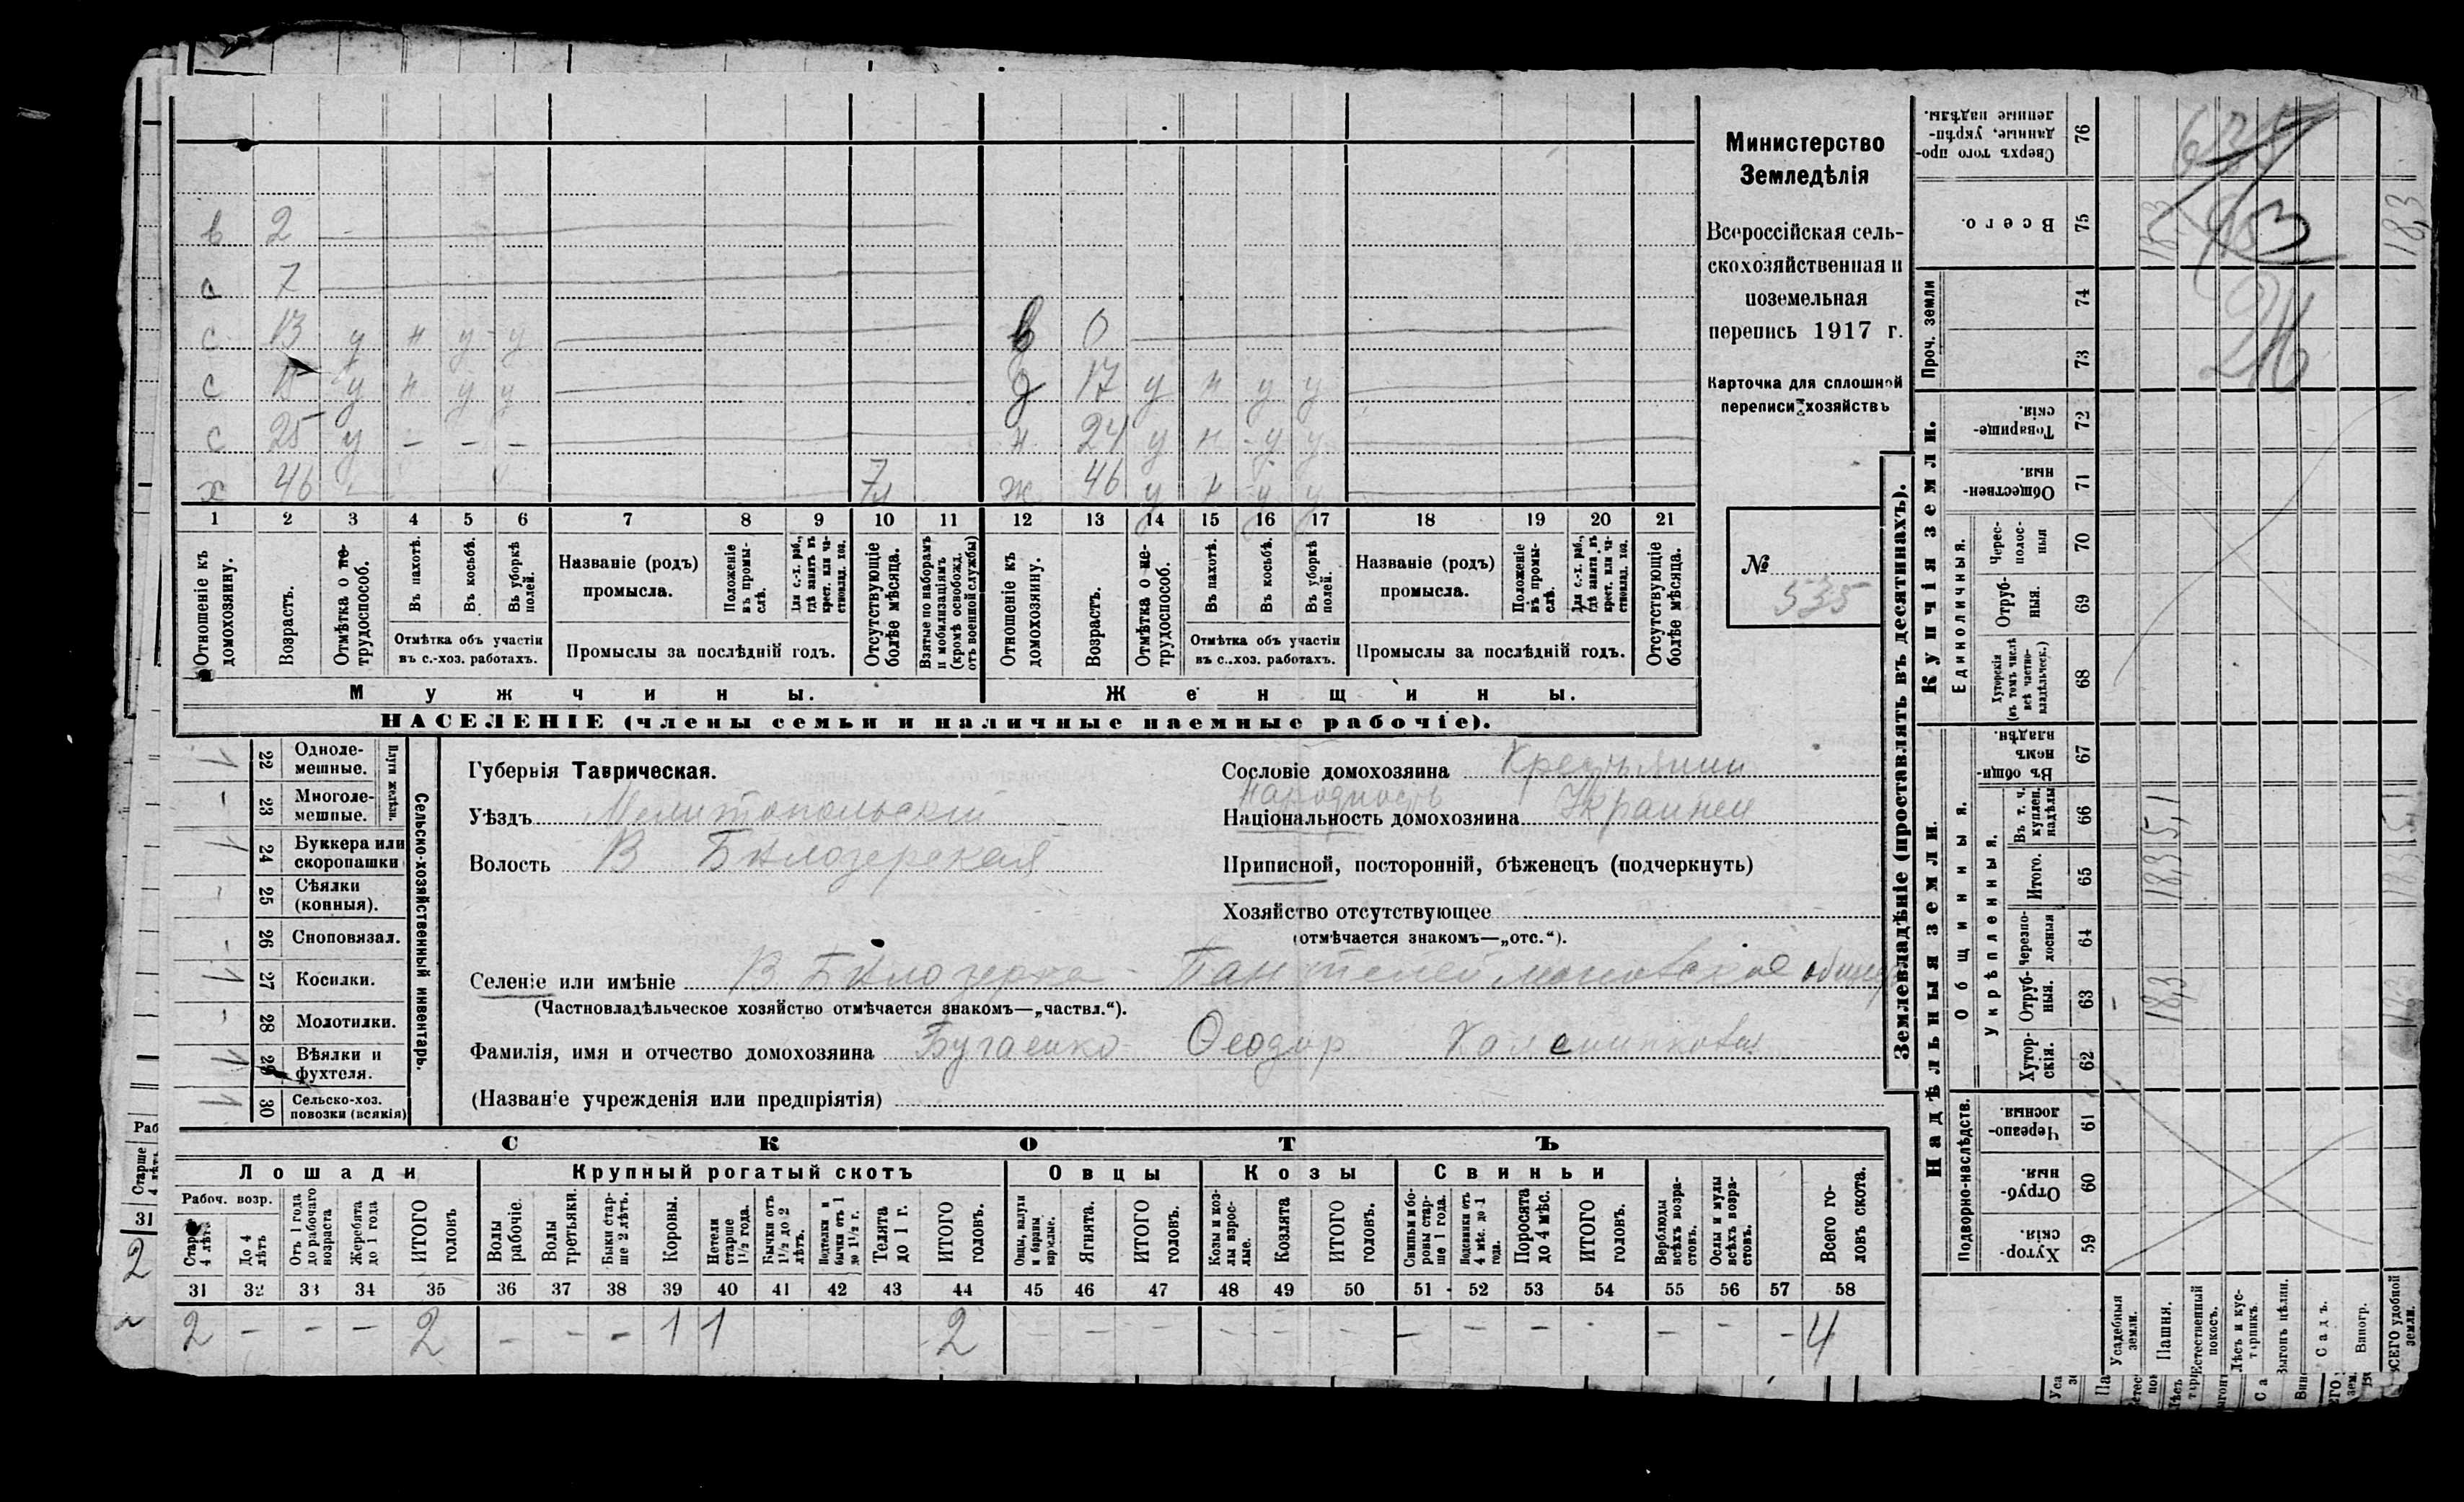 в 2 —
с 7 —
с 13 у н у у — в 0 —
с 18 у н у у — д 17 у н у у —
с 25 у - - - — н 24 у н у у —
х 46 — ж 46 у н у у —
1 2 3 4 5 6 7 8 9 10 11 12 13 14 15 16 17 18 19 20 21
Отношеніе къ домохозяину.
Возрастъ.
Отмѣтка о не-трудоспособ.
Въ пахотѣ.
Въ косьбѣ.
Въ уборкѣ полей.
Отмѣтка объ участіи
въ с.-хоз. работахъ.
Названіе (родъ)
промысла.
Положеніе въ промы-слѣ.
Для с.-х. раб., гдѣ занятъ въ крест. или ча-стновлад. хоз.
Промыслы за послѣдній годъ.
Отсутствующіе болѣе мѣсяца.
Взятые по наборамъ и мобилизаціямъ (кромѣ освобожд. отъ военной службы)
Отношеніе къ домохозяину.
Возрастъ.
Отмѣтка о не-трудоспособ.
Въ пахотѣ.
Въ косьбѣ.
Въ уборкѣ полей.
Отмѣтка объ участіи
въ с..хоз. работахъ.
Названіе (родъ)
промысла.
Положеніе въ промы-слѣ.
Для с.-х. раб., гдѣ занята въ крест. или ча-стновлад. хоз.
Промыслы за послѣдній годъ.
Отсутствующіе болѣе мѣсяца.
Мужчины.
Женщины.
НАСЕЛЕНІЕ (члены семьи и наличные наемные рабочіе).
Министерство
Земледѣлія
Всероссійская сель-
скохозяйственная и
поземельная
перепись 1917 г.
Карточка для сплошной
переписи хозяйствъ
№
535
Сельско-хозяйственный инвентарь.
Плуги желѣзн.
1 22 Одноле-мешные.
- 23 Многоле-мешные.
1 24 Буккера или скоропашки
- 25 Сѣялки (конныя).
- 26 Сноповязал.
1 27 Косилки.
- 28 Молотилки.
1 29 Вѣялки и фухтеля.
1 30 Сельско-хоз. повозки (всякія)
Губернія Таврическая.
Уѣздъ Мелитопольскій
Волость В Бѣлозерская
Сословіе домохозяина Крестьянин
народность
Національность домохозяина Украинец
Приписной, посторонній, бѣженецъ (подчеркнуть)
Хозяйство отсутствующее
(отмѣчается знакомъ—„отс.“).
Селеніе или имѣніе В Бѣлозерка Пантелеймоновское общ
(Частновладѣльческое хозяйство отмѣчается знакомъ—„частвл.“).
Фамилія, имя и отчество домохозяина Бугаенко Феодор
(Названіе учрежденія или предпріятія)
СКОТЪ
Лошади Крупный рогатый скотъ Овцы Козы Свиньи
Рабоч. возр.
Старше 4 лѣтъ
До 4 лѣтъ
Отъ 1 года до рабочаго возраста
Жеребята до 1 года
ИТОГО головъ
Волы рабочіе.
Волы третьяки.
Быки стар-ше 2 лѣтъ.
Коровы.
Нетели старше 1½ года.
Бычки отъ 1½ до 2 лѣтъ.
Подтелки и бычки отъ 1 до 1½ г.
Телята до 1 г.
ИТОГО головъ.
Овцы, валухи и бараны взрослые.
Ягнята.
ИТОГО головъ.
Козы и коз-лы взрос-лые.
Козлята
ИТОГО головъ.
Свиньи и бо-ровы стар-ше 1 года.
Подсвинки отъ 4 мѣс. до 1 года.
Поросята до 4 мѣс.
ИТОГО головъ.
Верблюды всѣхъ возра-стовъ.
Ослы и мулы всѣхъ возра-стовъ.
Всего го-ловъ скота.
31 32 33 34 35 36 37 38 39 40 41 42 43 44 45 46 47 48 49 50 51 52 53 54 55 56 57 58
2 - - - 2 - - - 1 1 2 - - - - - - - - - - - - - 4
Землевладѣніе (проставлять въ десятинахъ).
Купчія земли.
Надѣльныя земли.
Проч. земли
Единоличныя.
Общинныя.
Укрѣпленныя.
Подворно-наслѣдств.
76 Сверхъ того про-данные, укрѣп-ленные надѣлы.
75 Всего. 18,3 18,3
74
73
72 Товарище-скія.
71 Обществен-ныя.
70 Черес-полос-ныя
69 Отруб-ныя.
68 Хуторскія (въ томъ числѣ всѣ частно-владѣльческ.)
67 Въ общин-номъ владѣн.
66 Въ т. ч. куплен. надѣлы 5,1
65 Итого. 18,3
64 Черезпо-лосныя
63 Отруб-ныя. - 18,3
62 Хутор-скія.
61 Черезпо-лосныя.
60 Отруб-ныя.
59 Хутор-скія.
Усадебныя земли.
Пашня.
Естественный покосъ.
Лѣсъ и кус-тарникъ.
Выгонъ цѣлин.
Садъ.
Виногр.
ВСЕГО удобной земли.
Раб
Старше 4 лѣтъ
31
2